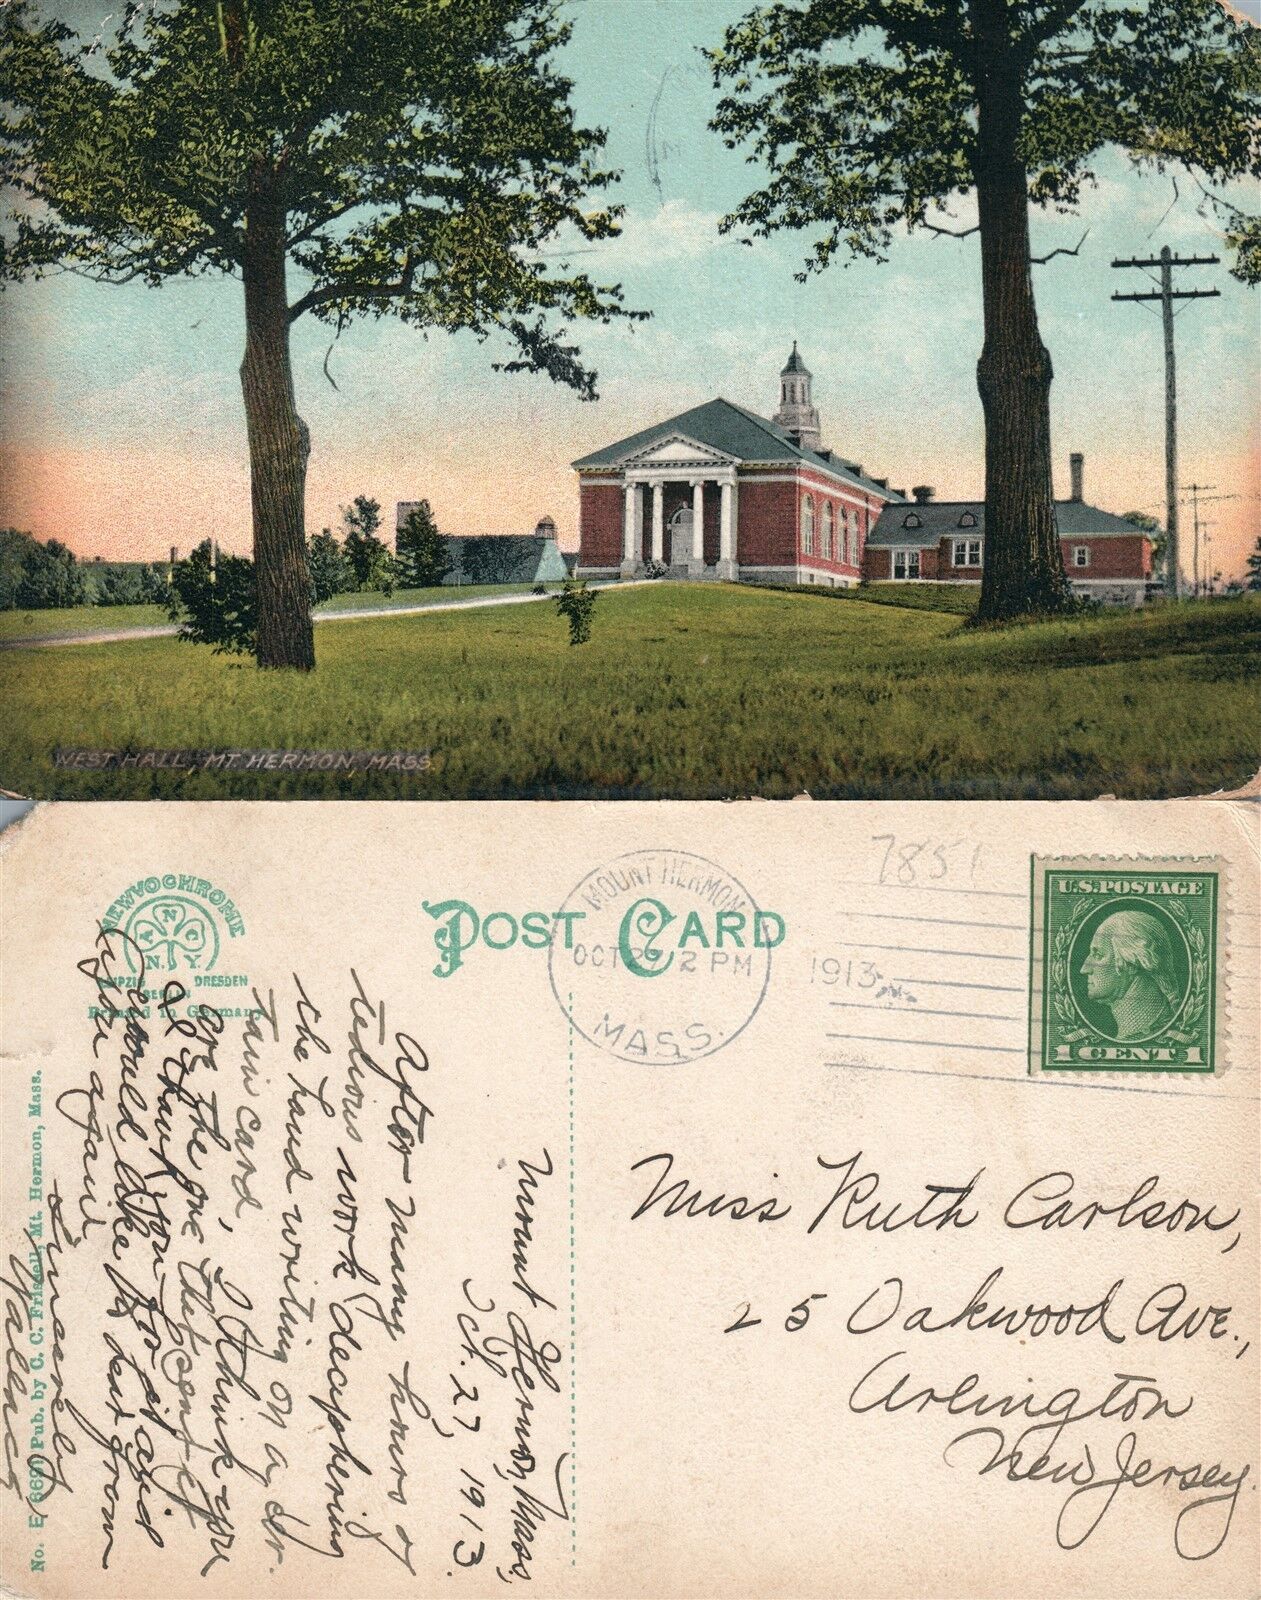 WEST HALL, MT. HERMON, MASS.
NEWVOCHROME
A N C
N. Y.
LEIPZIG DRESDEN
BERLIN
Printed in Germany
POST CARD
MOUNT HERMON
OCT 27 2 PM
MASS.
1913
7851
U.S. POSTAGE
1 CENT 1
Mount Hermon, Mass,
Oct. 27, 1913.
After many hours of
tedious work deciphering
the hand writing on a cer-
tain card, I think you
are the one that sent it
I thank you for it and
would like to hear from
you again.
Sincerely
Wallace
No. E 6691 Pub. by C. C. Frissell, Mt. Hermon, Mass.
Miss Ruth Carlson,
25 Oakwood Ave.,
Arlington
New Jersey.